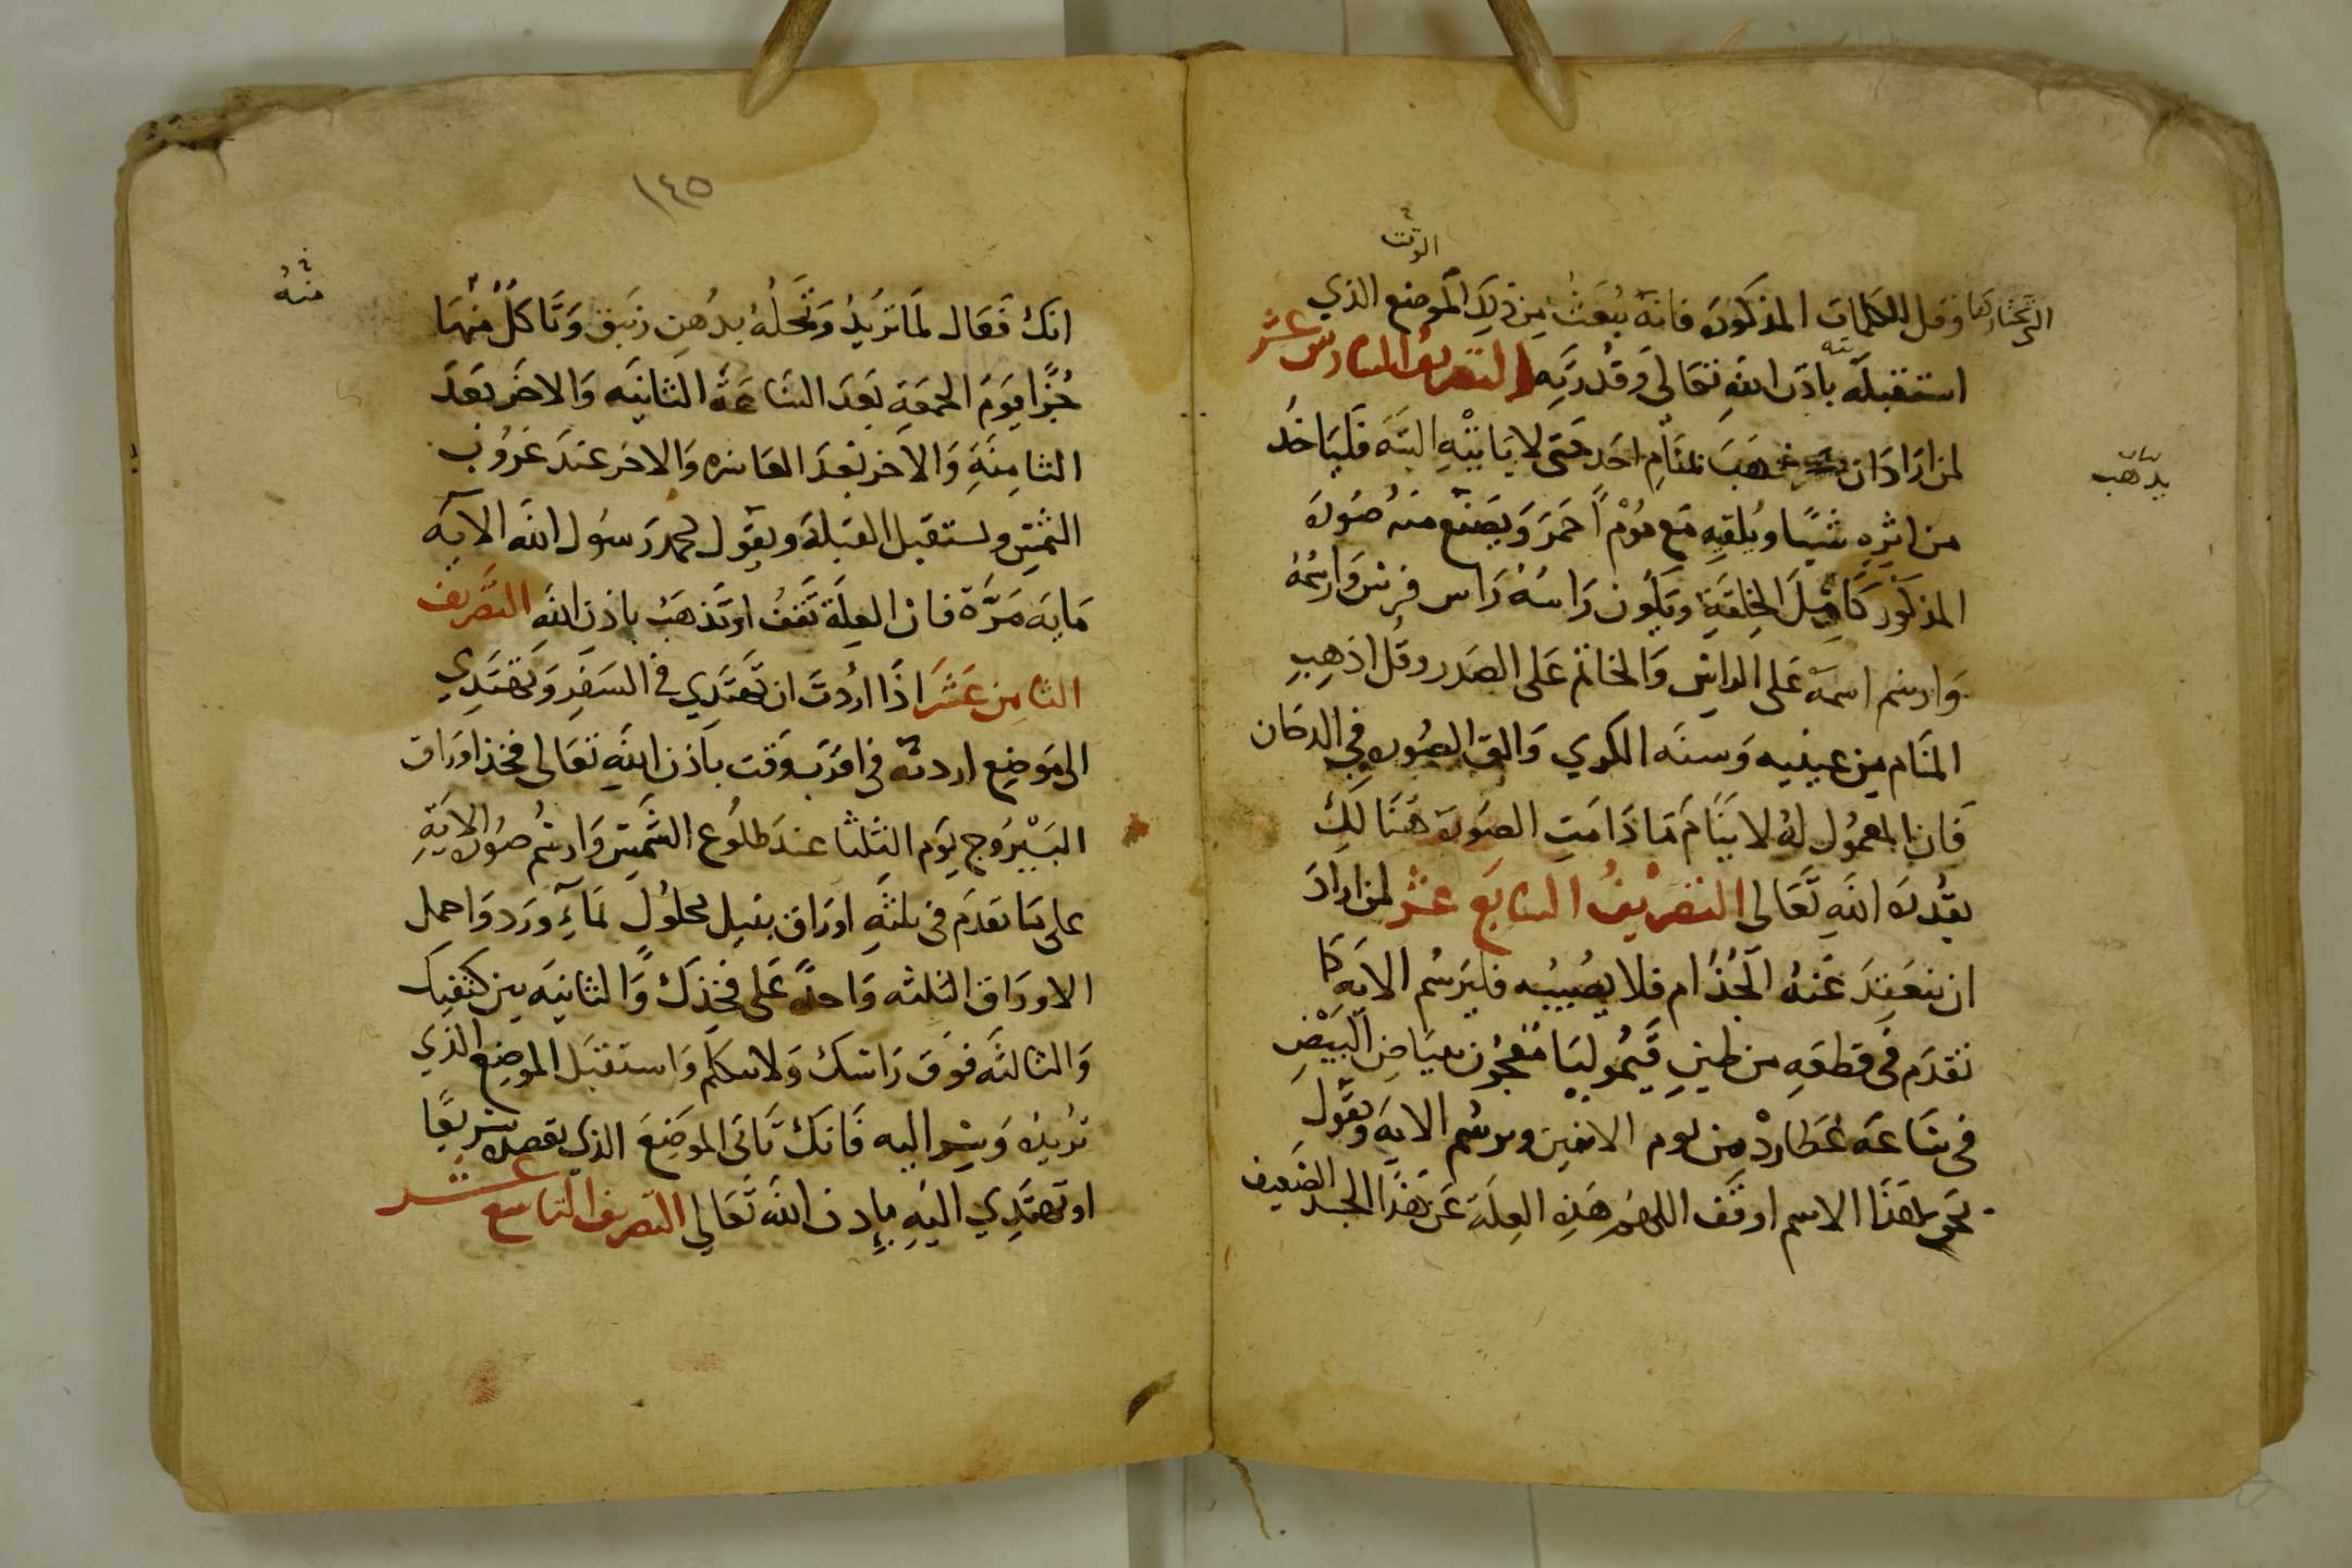 الوقت
التي تختارها وقل الكلمات المذكوره فانه يبعث من ذلك الموضع الذي
استقبلته باذن الله تعالى وقدرته التصريف السادس عشر
لمن اراد ان يذهب بمنام احد حتى لا ياتيه البته فلياخذ
يذهب
من اثره شيا ويلقيه مع موم احمر ويصنع منه صوره
المذكور كامل الخلقة ويكون راسه راس فرس وارسمه
وارسم اسمه على الراس والخاتم على الصدر وقل اذهب
المنام من عينيه وسنه الكري والق الصوره في الدكان
فان المعمول له لا ينام ما دامت الصوره هنالك
بقدره الله تعالى التصريف السابع عشر لمن اراد
ان ينعقد عنه الجذام فلا يصيبه فليرسم الايه كما
تقدم في قطعه من طين قيموليا معجون ببياض البيض
في ساعه عطارد من يوم الاثنين ويرسم الايه ويقول
بحق هذا الاسم اوقف اللهم هذه العله عن هذا الجسد الضعيف
١٤٥
انك فعال لما تريد وتحله بدهن زنبق وتاكل منها
منه
جزا يوم الجمعه بعد الساعة الثانيه والاخر بعد
الثامنة والاخر بعد العاشره والاخر عند غروب
الشمس ويستقبل القبلة ويقول محمد رسول الله الايه
مايه مرة فان العلة تقف او تذهب باذن الله التصريف
الثامن عشر اذا اردت ان تهتدي في السفر وتهتدي
الى موضع اردته في اقرب وقت باذن الله تعالى فخذ اوراق
اليبروج يوم الثلثا عند طلوع الشمس وارسم صوره الاية
على ما تقدم في ثلثه اوراق بنيل محلول بماء ورد واحمل
الاوراق الثلثه واحدة على فخذك والثانيه بين كتفيك
والثالثه فوق راسك ولا تتكلم واستقبل الموضع الذي
تريده وسر اليه فانك تاتي الموضع الذي تقصده سريعا
او تهتدي اليه باذن الله تعالى التصريف التاسع عشر